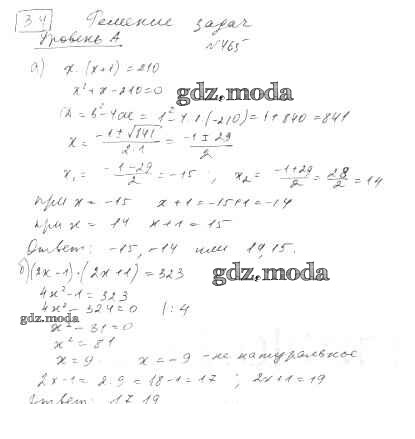 34 Решение задач
Уровень А №465
а) x·(x+1)=210
x²+x-210=0 gdz.moda
D=b²-4ac=1²-4·1·(-210)=1+840=841
x=(-1±√841)/(2·1)=(-1±29)/2
x₁=(-1-29)/2=-15; x₂=(-1+29)/2=28/2=14
при x=-15 x+1=-15+1=-14
при x=14 x+1=15
Ответ: -15,-14 или 14,15.
б)(2x-1)·(2x+1)=323 gdz.moda
4x²-1=323
4x²-324=0 |:4
gdz.moda
x²-81=0
x²=81
x=9 x=-9 -не натуральное
2x-1=2·9=18-1=17; 2x+1=19
Ответ: 17 19